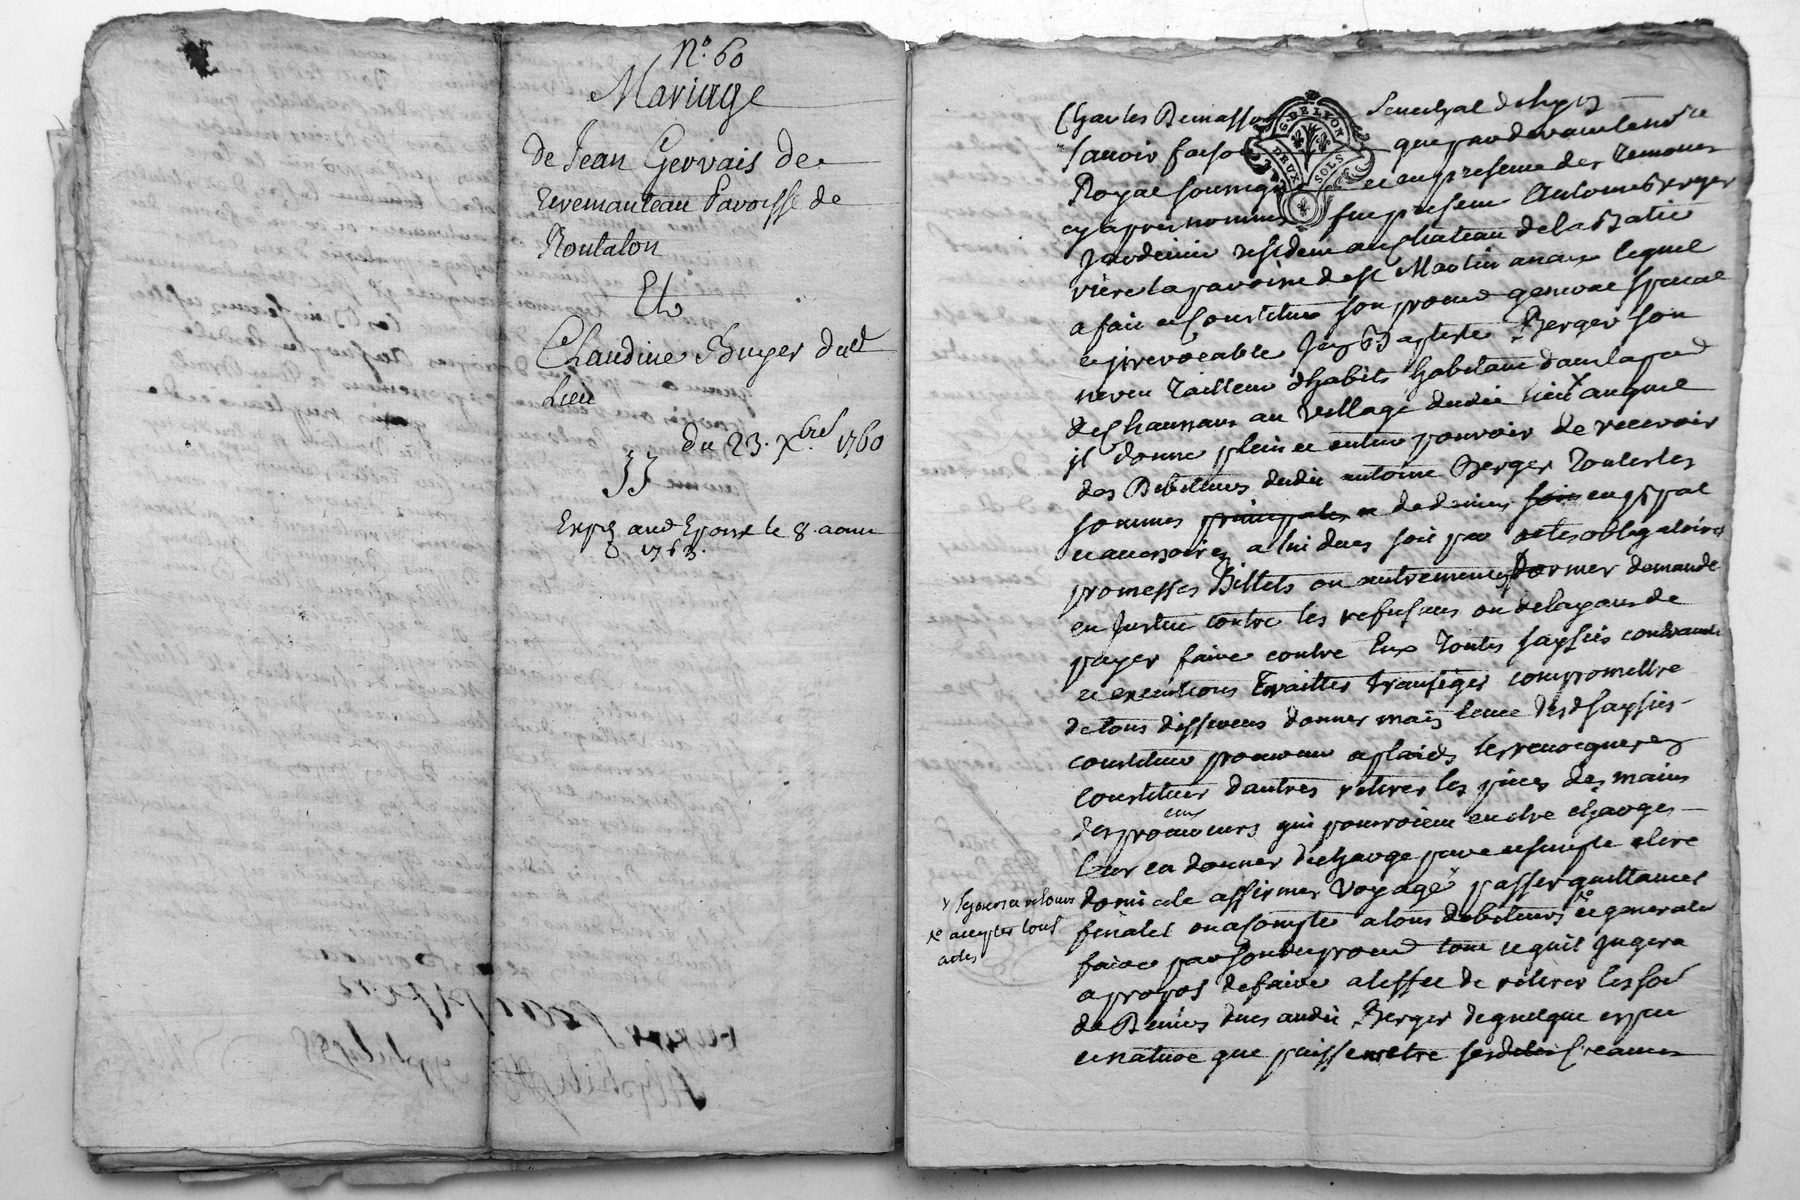 N.° 60
Mariage
de Jean Gervais de
Paroisse de
Rontalon
Et
Claudine Buyer dud
Lieu
du 23. Xbre 1760
33
Expé aud Epoux le 8. aoust
1763.
Charles Demasso Senechal de Lyon
G. DE LYON
DEUX SOLS
Savoir faisons que par devant le no.re
Royal soussigné et en presence des temoins
cy apres nommés fut present Antoine Berger
Jardinier resident au chateau de la Batie
la paroisse de St Martin lequel
a fait et constitué son procur general special
et irrevocable Jean Baptiste Berger son
neveu tailleur d'habits habitant dans la par
de Chaussans au village dudit lieu auquel
il donne plein et entier pouvoir de recevoir
des Debiteurs dudit antoine Berger toutes les
sommes principales de deniers soit en p.pal
et accessoires a lui dues soit par actes obligatoires
promesses Billets ou autrement former demande
en Justice contre les refusans ou delayans de
payer faire contre Eux toutes saysies contraintes
et executions traitter transiger compromettre
de tous differens donner main levée des saysies
constituer procureur a plaids les revoequer en
constituer d'autres retirer les pieces des mains
des procureurs qui pourroient en etre charges
leur en donner decharge par ensuitte elire
domicile affirmer voyage passer quittances
x sejours et retours
x accepter tous
actes
finales ou a compte a tous debiteurs et generale
faire par son procur tout ce quil jugera
a propos de faire a l'effet de retirer les so.e
de Deniers dues audit Berger de quelque espece
et nature que puissent etre ses Creances